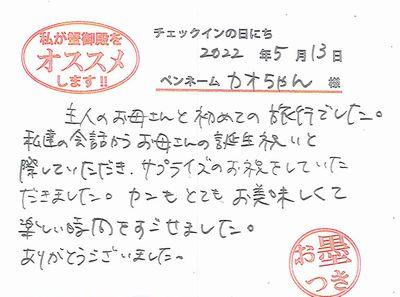 私が蟹御殿を
オススメ
します!!
チェックインの日にち
2022 年 5 月 13 日
ペンネーム カオちゃん 様
主人のお母さんと初めての旅行でした。
私達の会話からお母さんの誕生祝いと
際していただき、サプライズのお祝をしていた
だきました。カンもとてもお美味しくて
楽しい時間をすごせました。
ありがとうございました。
お墨
つき